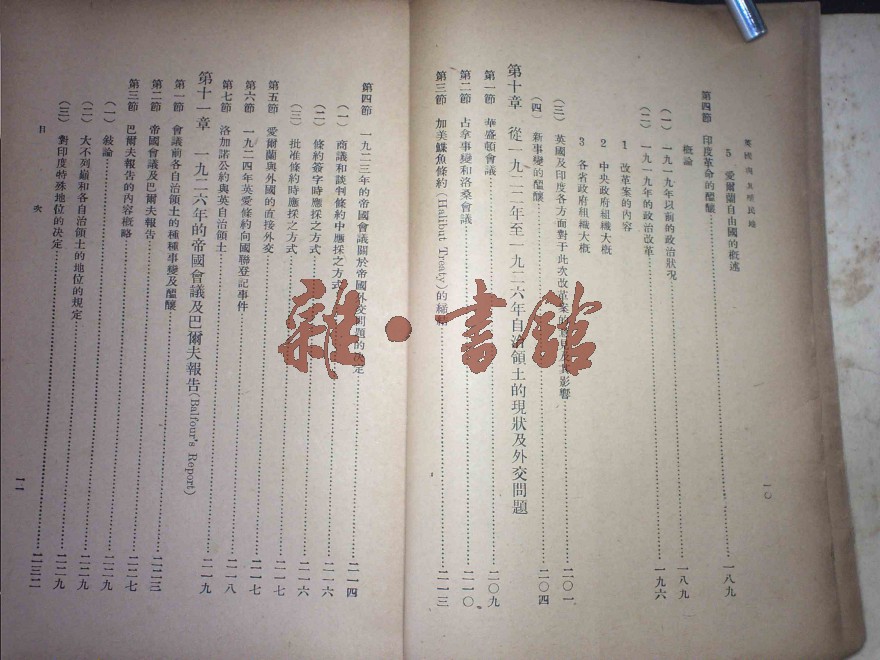 英國與其殖民地
一〇
5 愛爾蘭自由國的概述……一八九
第四節 印度革命的醞釀
概論……一八九
(一) 一九一九年以前的政治狀况
(二) 一九一九年的政治改革……一九六
1 改革案的內容
2 中央政府組織大概
3 各省政府組織大概
(三) 英國及印度各方面對于此次改革案的意見及其影響……二〇一
(四) 新事變的醞釀……二〇四
第十章 從一九二二年至一九二六年自治領土的現狀及外交問題
第一節 華盛頓會議……二〇九
第二節 占拿事變和洛桑會議……二一〇
第三節 加美鰈魚條約(Halibut Treaty)的……二一三
第四節 一九二三年的帝國會議關於帝國外交問題的决定……二一四
(一) 商議和談判條約中應採之方式……二一六
(二) 條約簽字時應採之方式……二一六
(三) 批准條約時應採之方式……二一七
第五節 愛爾蘭與外國的直接外交……二一七
第六節 一九二四年英愛條約向國聯登記事件……二一七
第七節 洛加諾公約與英自治領土……二一八
第十一章 一九二六年的帝國會議及巴爾夫報告(Balfour's Report)……二一九
第一節 會議前各自治領土的種種事變及醞釀……二二三
第二節 帝國會議及巴爾夫報告……二二三
第三節 巴爾夫報告的內容概略……二二七
(一) 敍論……二二九
(二) 大不列巔和各自治領土的地位的規定……二二九
(三) 對印度特殊地位的决定……二三二
目 次
一一
雜·書館